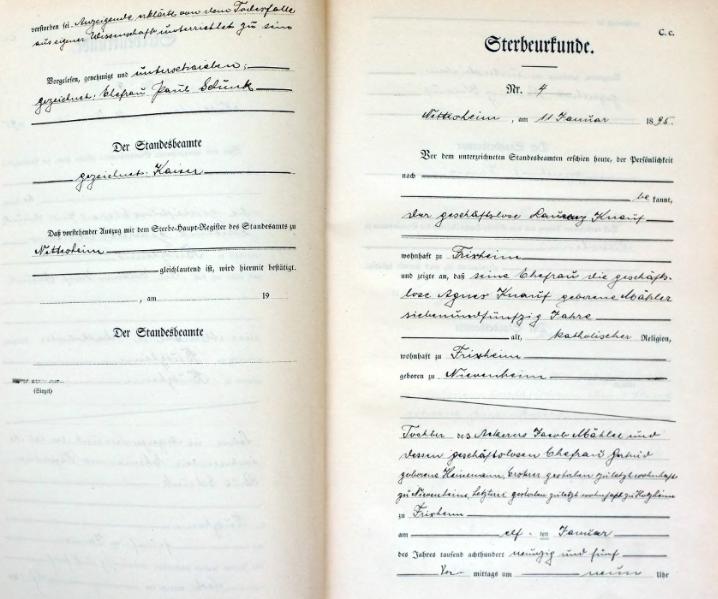 verstorben sei. Anzeigende erklärte von dem Todesfalle
aus eigener Wissenschaft unterrichtet zu sein
Vorgelesen, genehmigt und unterschrieben:
gezeichnet: Ehefrau Paul Schunk
Der Standesbeamte
gezeichnet: Kaiser
Daß vorstehender Auszug mit dem Sterbe-Haupt-Register des Standesamts zu
Nettesheim
gleichlautend ist, wird hiermit bestätigt.
, am 19
Der Standesbeamte
(Siegel)
C. c.
Sterbeurkunde.
Nr. 4
Nettesheim, am 11 Januar 1895.
Vor dem unterzeichneten Standesbeamten erschien heute, der Persönlichkeit
nach
be kannt,
der geschäftslose Laurenz Knauf
wohnhaft zu Frixheim
und zeigte an, daß seine Ehefrau die geschäfts-
lose Agnes Knauf geborene Mähler
siebenundfünfzig Jahre
alt, katholischer Religion,
wohnhaft zu Frixheim
geboren zu Nievenheim
Tochter des Ackerers Jacob Mähler und
dessen geschäftslosen Ehefrau
geborene Heinemann, Ersterer gestorben zuletzt wohnhaft
zu Nievenheim, Letztere gestorben zuletzt wohnhaft zu
zu Frixheim
am elf-ten Januar
des Jahres tausend achthundert neunzig und fünf
Vor- mittags um neun Uhr